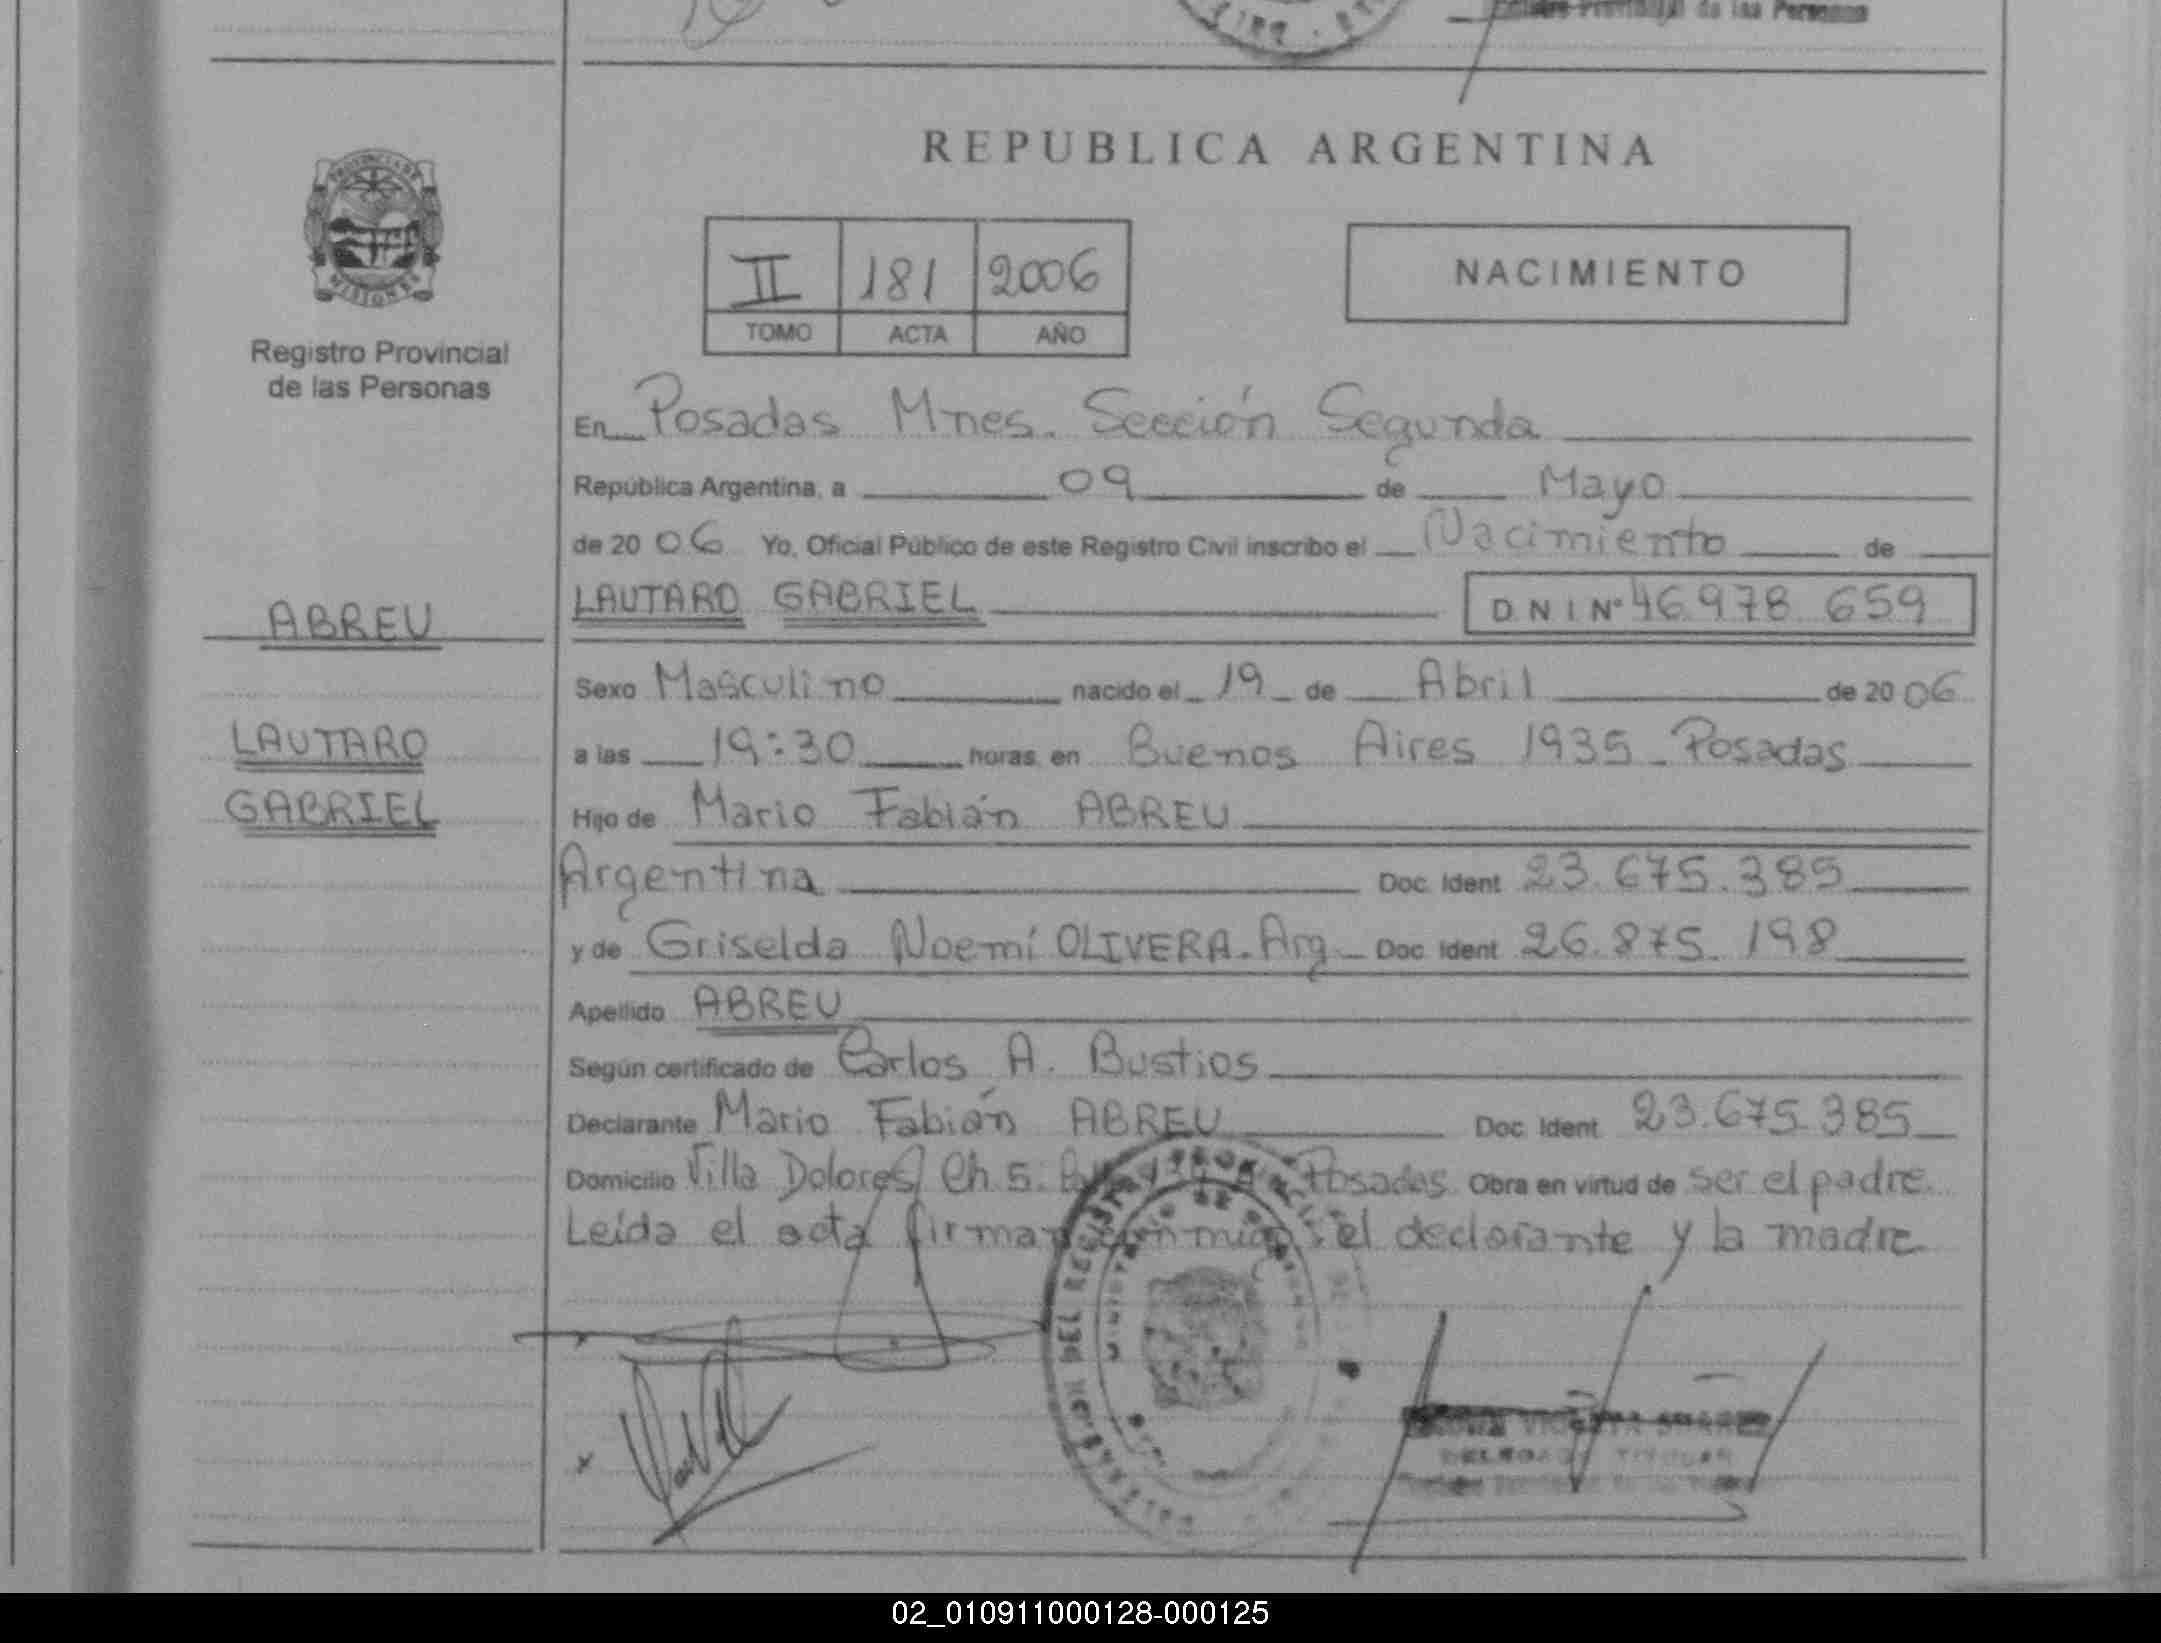 de las Personas
REPUBLICA ARGENTINA
PROVINCIA DE
MISIONES
Registro Provincial
de las Personas
II 181 2006
TOMO ACTA AÑO
NACIMIENTO
En Posadas Mnes. Sección Segunda
República Argentina, a 09 de Mayo
de 2006 Yo, Oficial Público de este Registro Civil inscribo el Nacimiento de
LAUTARO GABRIEL D.N.I Nº 46.978.659
ABREU
Sexo Masculino nacido el 19 de Abril de 2006
LAUTARO
a las 19:30 horas, en Buenos Aires 1935 - Posadas
GABRIEL
Hijo de Mario Fabián ABREU
Argentina Doc. Ident. 23.675.385
y de Griselda Noemí OLIVERA - Arg Doc. Ident. 26.875.198
Apellido ABREU
Según certificado de Carlos A. Bustios
Declarante Mario Fabián ABREU Doc. Ident. 23.675.385
Domicilio Villa Dolores Ch. 5. Posadas Obra en virtud de ser el padre.
Leída el acta firman conmigo: el declarante y la madre
DELEGADA TITULAR
02_010911000128-000125